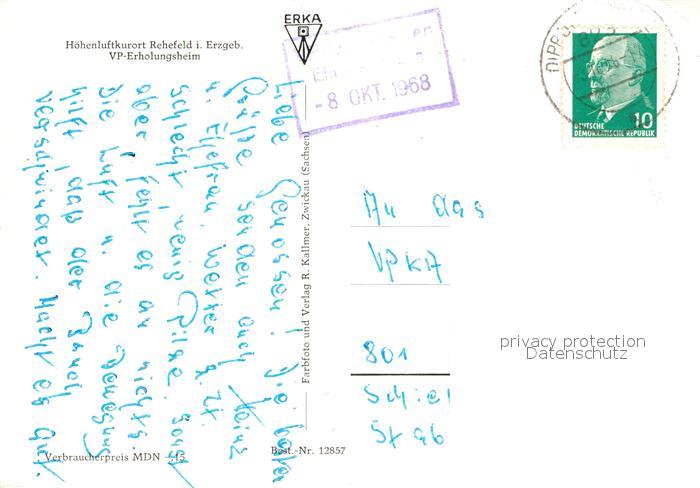 Höhenluftkurort Rehefeld i. Erzgeb.
VP-Erholungsheim
ERKA
- 8 OKT. 1968
10
DEUTSCHE
DEMOKRATISCHE REPUBLIK
Liebe Genossen! Die besten
Grüße senden Euch Heinz
u. Ehefrau. Wetter z. Zt.
schlecht wenig Pilze. Sonst
aber fehlt es an nichts.
Die Luft u. die Bewegung
hilft daß der Bauch
verschwindet. Macht es gut.
Farbfoto und Verlag R. Kallmer, Zwickau (Sachsen)
An das
VPKA
801
privacy protection
Datenschutz
Verbraucherpreis MDN
Best.-Nr. 12857